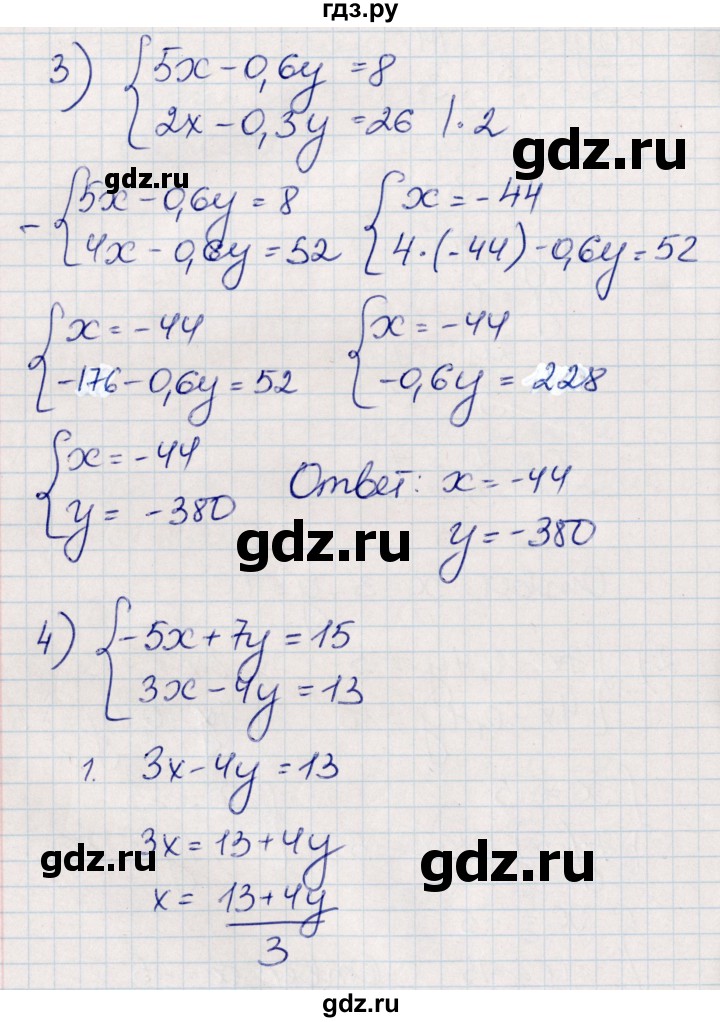 гдз.ру
3) { 5x - 0,6y = 8
2x - 0,3y = 26 | · 2
gdz.ru
gdz.ru
- { 5x - 0,6y = 8 { x = -44
4x - 0,6y = 52 4 · (-44) - 0,6y = 52
{ x = -44 { x = -44
-176 - 0,6y = 52 -0,6y = 228
{ x = -44 Ответ: x = -44
y = -380 y = -380
gdz.ru
gdz.ru
4) { -5x + 7y = 15
3x - 4y = 13
1. 3x - 4y = 13
3x = 13 + 4y
gdz.ru
gdz.ru
x = 13 + 4y
3
gdz.ru